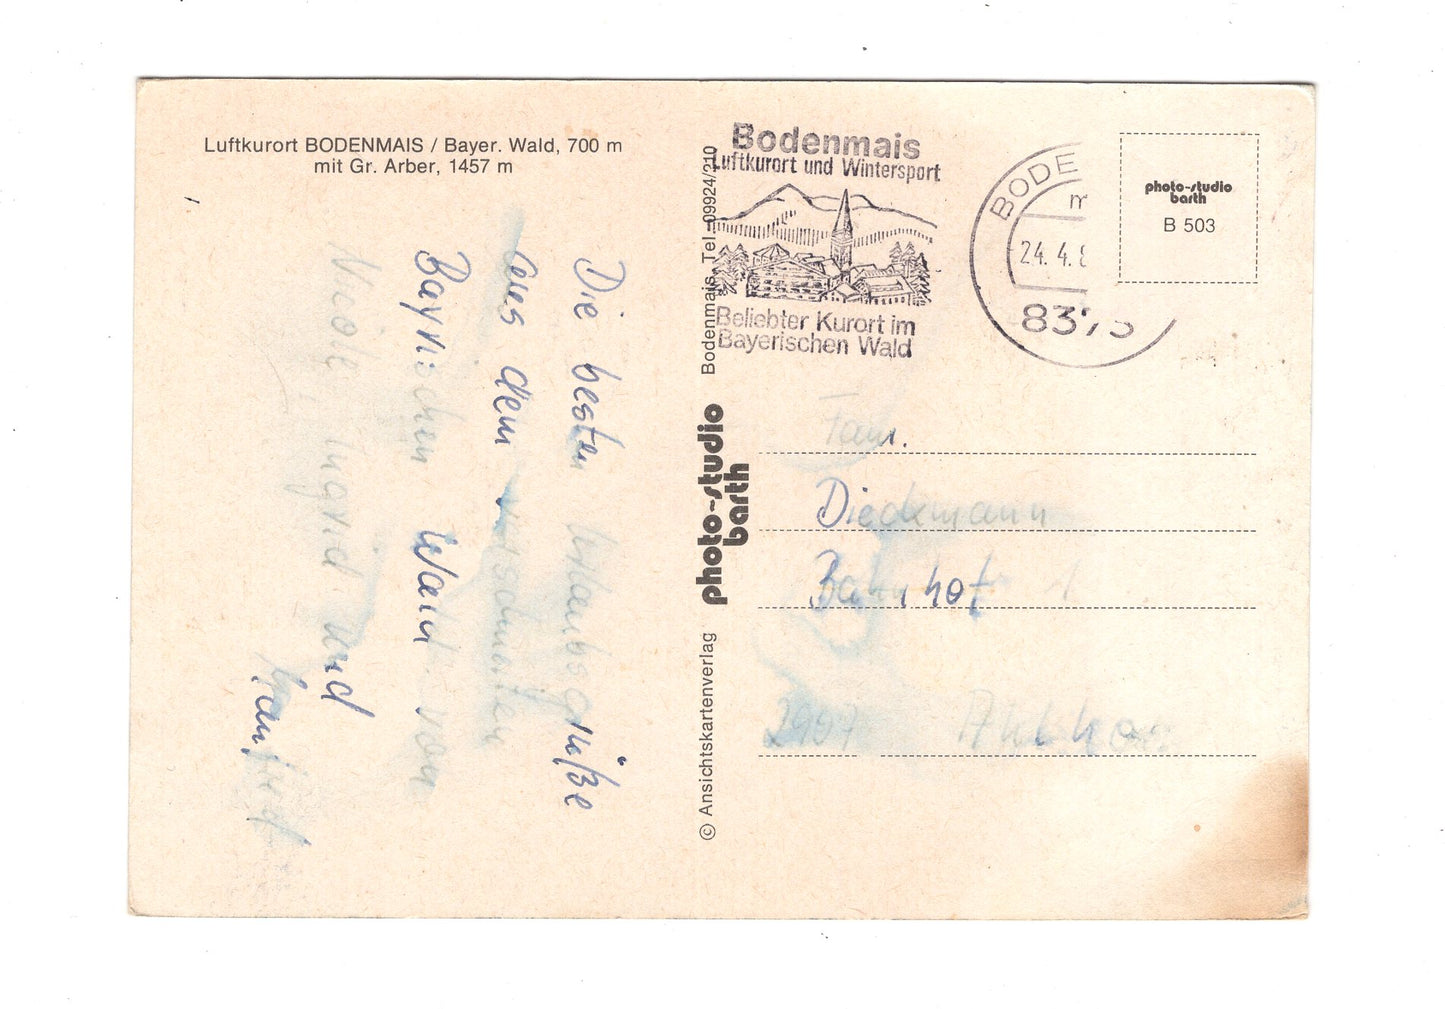 Luftkurort BODENMAIS / Bayer. Wald, 700 m
mit Gr. Arber, 1457 m
Die besten Urlaubsgrüße
aus dem
Bayrischen Wald von
Nicole Ingrid und
Manfred
© Ansichtskartenverlag photo-studio barth Bodenmais, Tel. 09924/210
Bodenmais
Luftkurort und Wintersport
Beliebter Kurort im
Bayerischen Wald
BODE
m
24. 4. 8
8373
photo-studio
barth
B 503
Fam.
Diedemann
Bahnhof
2907 Ahlhorn